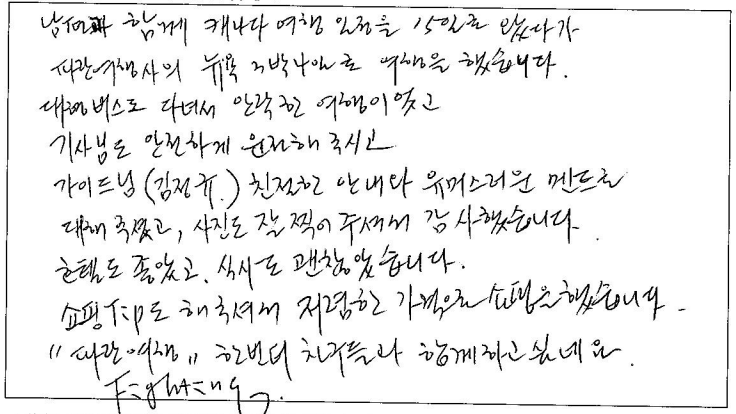 남편과 함께 캐나다 여행 일정을 15일로 왔다가
파란여행사의 뉴욕 3박4일로 여행을 했습니다.
대형버스로 다녀서 안락한 여행이였고
기사님도 안전하게 운전해 주시고
가이드님(김정규.) 친절한 안내와 유머스러운 멘트로
대해 주셨고, 사진도 잘 찍어 주셔서 감사했습니다.
호텔도 좋았고, 식사도 괜찮았습니다.
쇼핑 Tip도 해주셔서 저렴한 가격으로 쇼핑을 했습니다.
"파란여행" 한번더 친구들과 함께하고 싶네요.
Fighting.